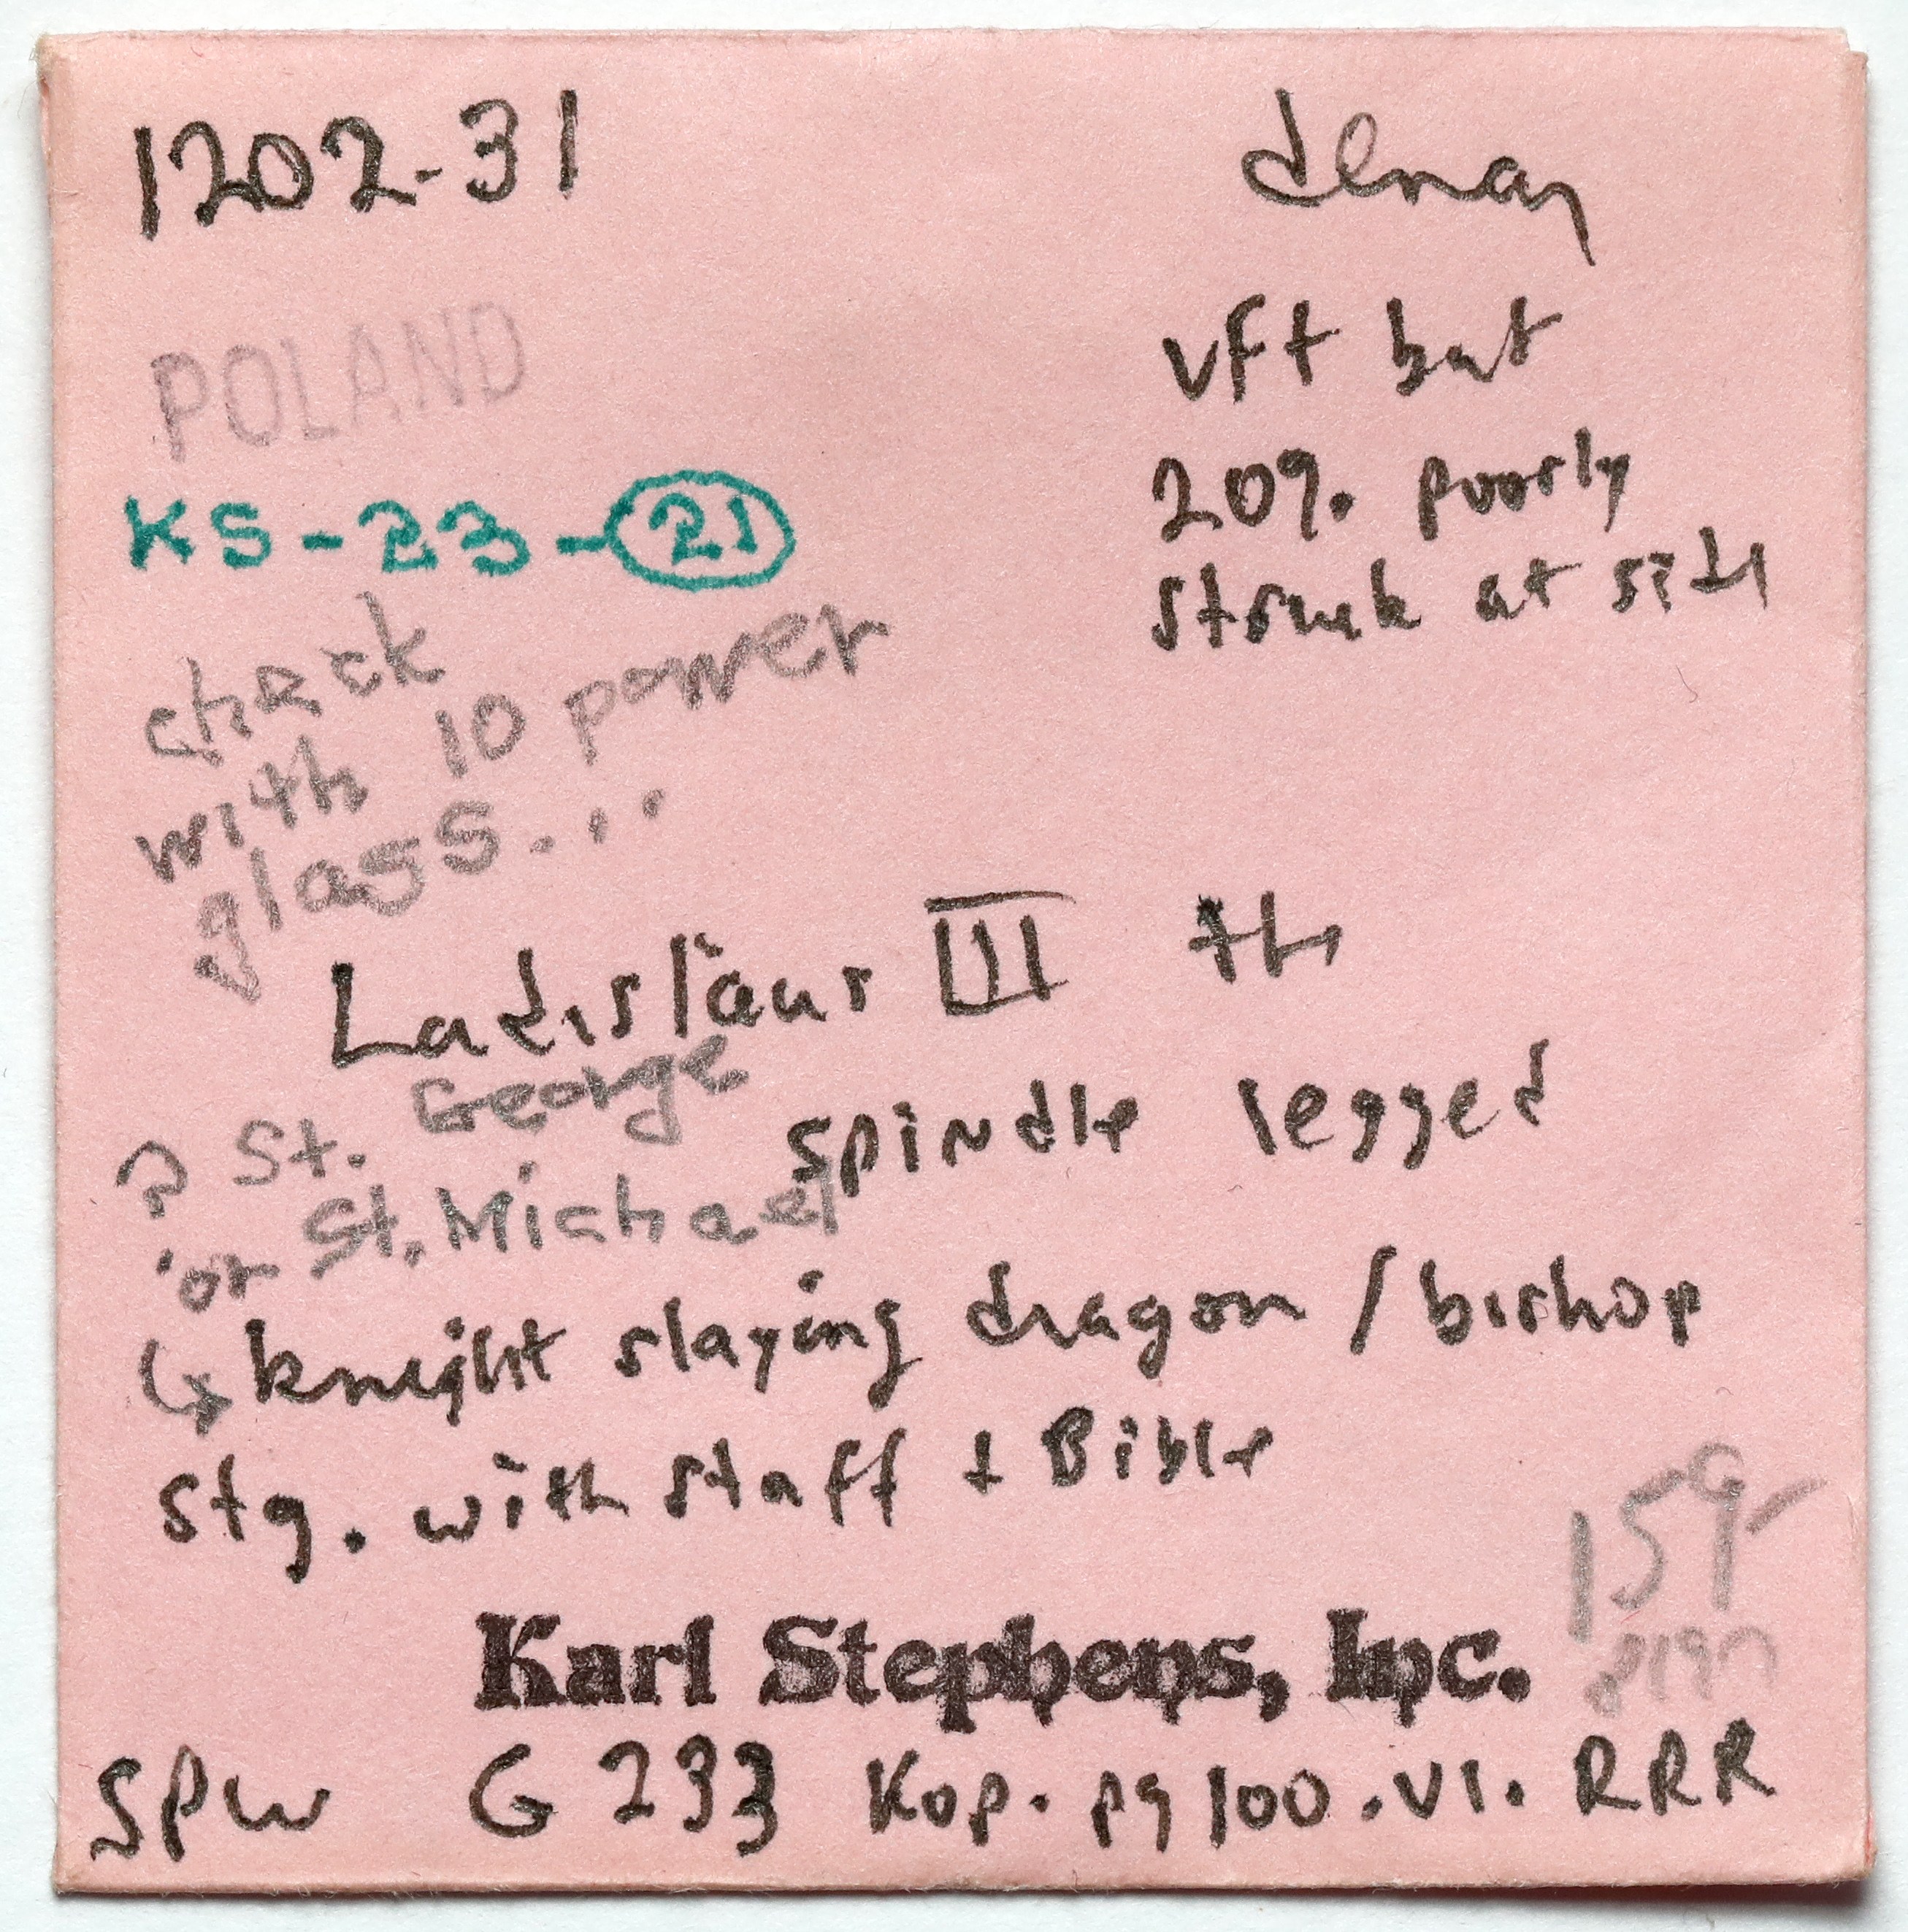 1202-31 denar
POLAND
vf+ but
20% poorly
struck at sides
KS-23-21
check
with 10 power
glass...
Ladislaus III the
spindle legged
? St. George
or St. Michael
↳ knight slaying dragon / bishop
stg. with staff + Bible
159-
Karl Stephens, Inc.
SPW G 233 Kop. pg 100.VI. RRR